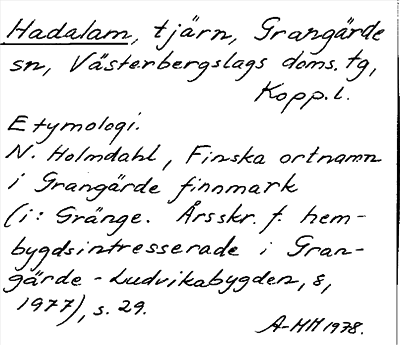 Hadalam, tjärn, Grangärde
sn, Västerbergslags doms. tg,
Kopp. l.
Etymologi.
N. Holmdahl, Finska ortnamn
i Grangärde finnmark
(i: Gränge. Årsskr. f. hem-
bygdsintresserade i Gran-
gärde - Ludvikabygden, 8,
1977), s. 29.
A-HH 1978.